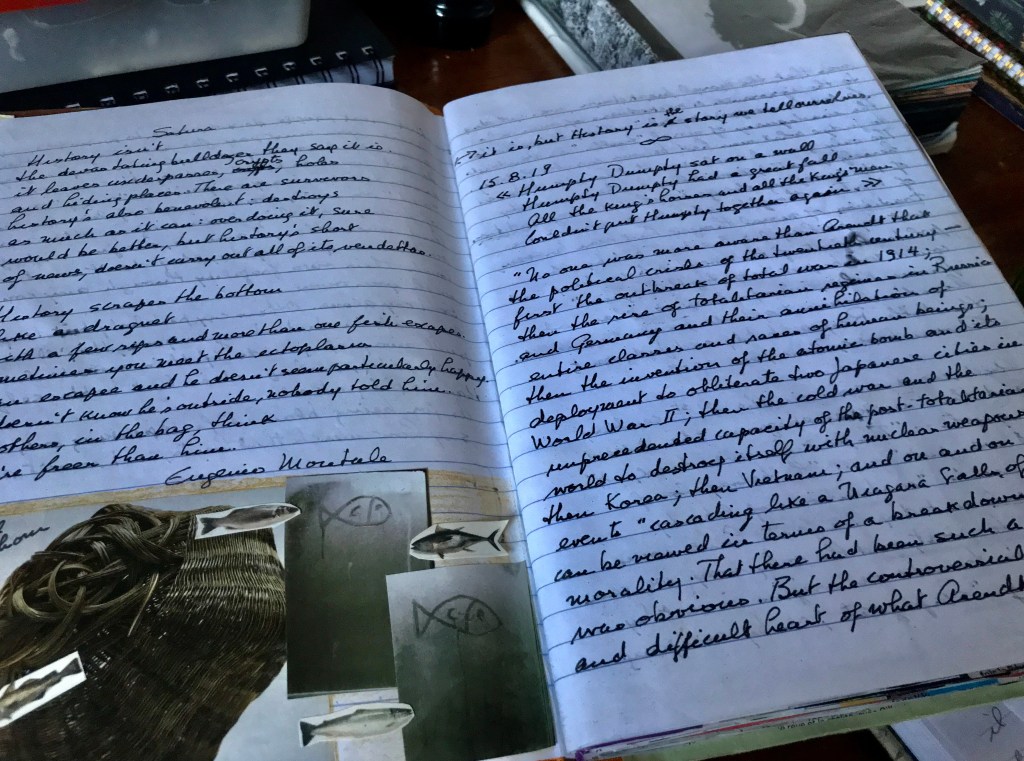 Satura
History isn't
the devastating bulldozer they say it is.
it leaves underpasses, crypts, holes
and hiding places. There are survivors
history's also benevolent: destroys
as much as it can: overdoing it, sure
would be better, but history's short
of news, doesn't carry out all of its vendettas.
History scrapes the bottom
like a dragnet
with a few rips and more than one fish escapes.
ometimes you meet the ectoplasm
an escapee and he doesn't seem particularly happy.
doesn't know he's outside, nobody told him.
others, in the bag, think
're freer than him.
Eugenio Montale
it is, but History is the story we tell ourselves.
15.8.19
« Humphy Dumphy sat on a wall
Humphy Dumphy had a great fall
All the King's horses and all the King's men
Couldn't put Humphy together again. »
"No one was more aware than Arendt that
the political crisis of the twentieth century —
first the outbreak of total war in 1914;
then the rise of totalitarian regimes in Russia
and Germany and their annihilation of
entire classes and races of human beings;
then the invention of the atomic bomb and its
deployment to obliterate two Japanese cities in
World War II; then the cold war and the
unprecedented capacity of the post-totalitarian
world to destroy itself with nuclear weapons
then Korea; then Vietnam; and on and on
events "cascading like a Niagara Falls of
can be viewed in terms of a breakdown
morality. That there had been such a
was obvious. But the controversial
and difficult heart of what Arendt